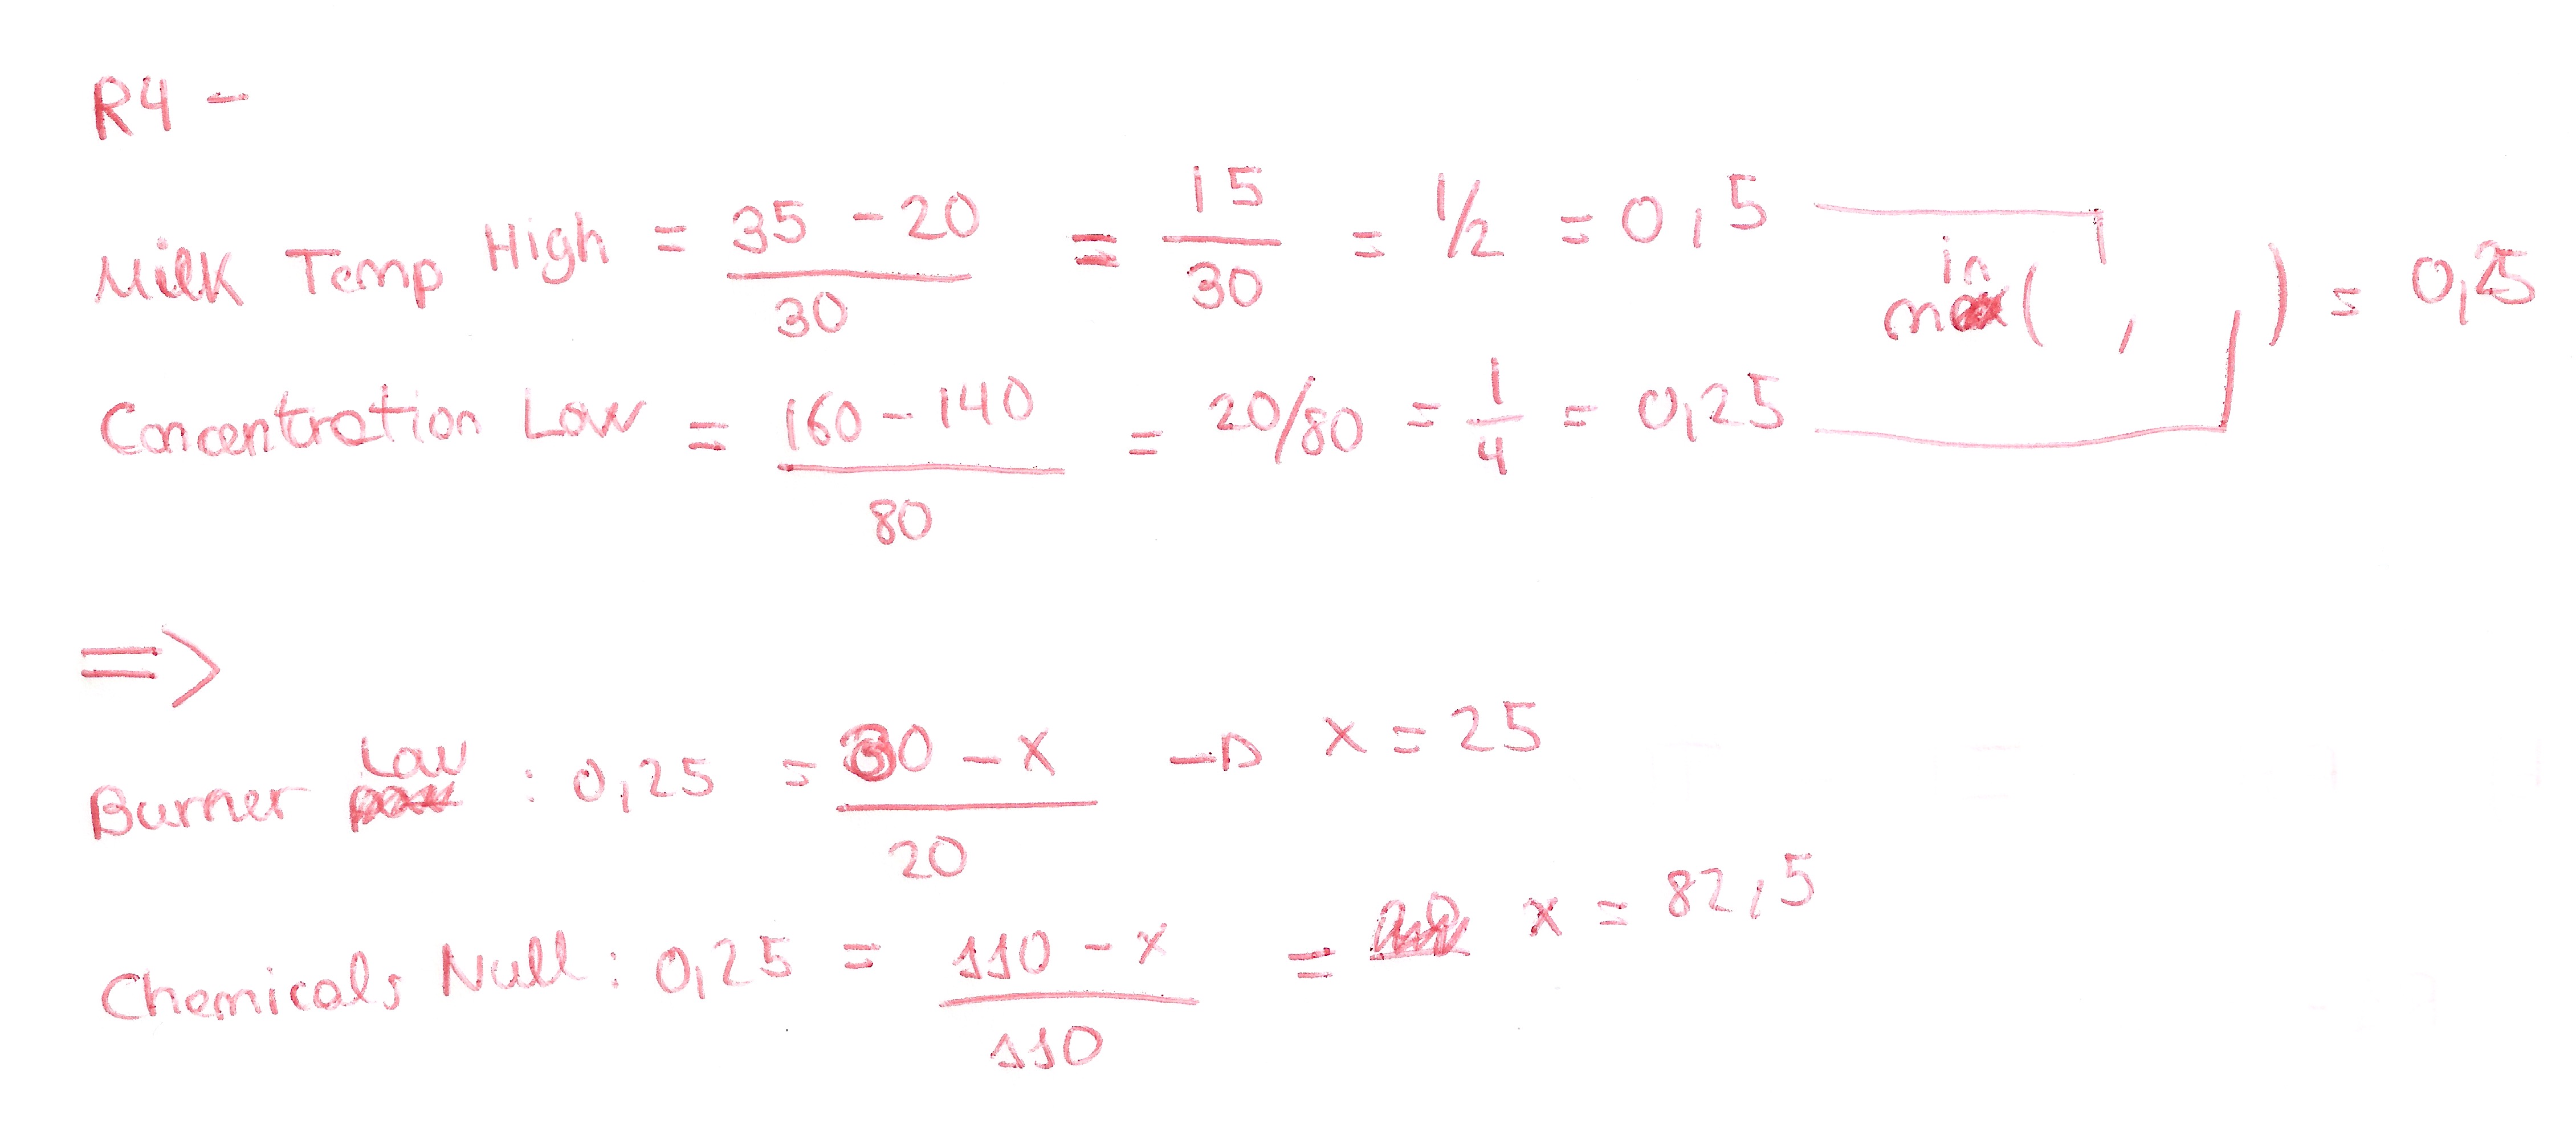 R4 -
Milk Temp High = 35 - 20 / 30 = 15 / 30 = 1/2 = 0,5
min( , ) = 0,25
Concentration Low = 160 - 140 / 80 = 20/80 = 1/4 = 0,25
=>
Burner Low : 0,25 = 30 - x / 20 -> x = 25
Chemicals Null : 0,25 = 110 - x / 110 = x = 82,5